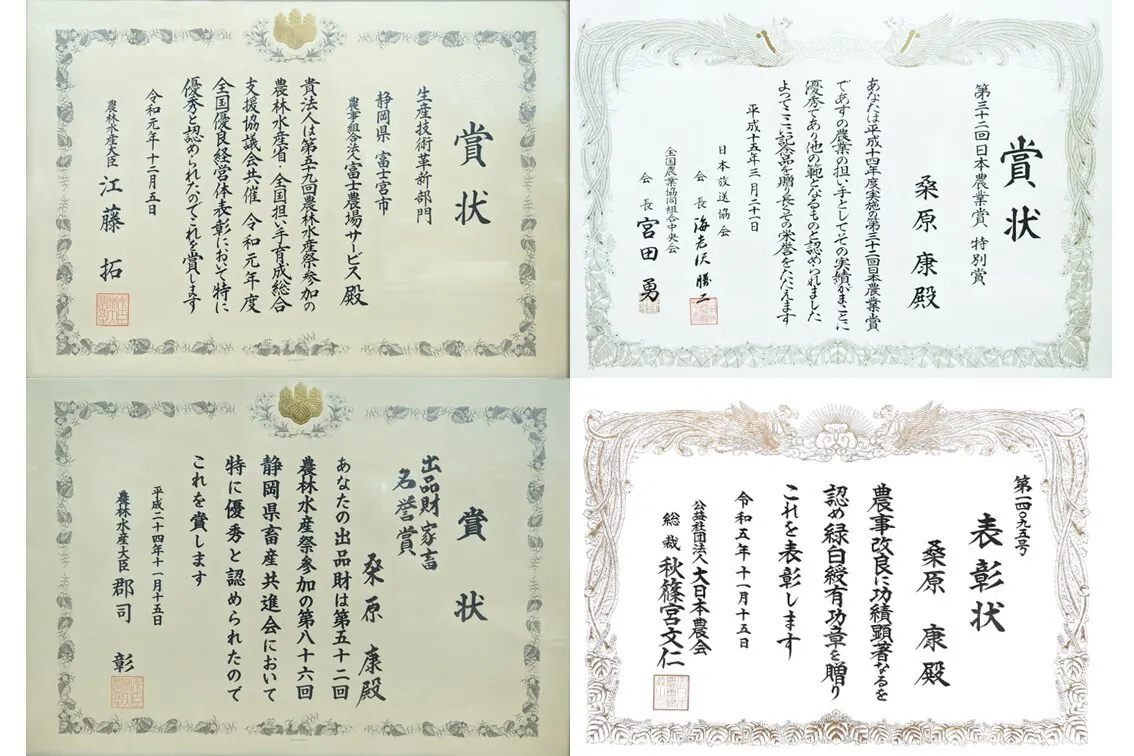 賞状
生産技術革新部門
静岡県 富士宮市
農事組合法人富士農場サービス殿
貴法人は第五十九回農林水産祭参加の
農林水産省・全国担い手育成総合
支援協議会共催 令和元年度
全国優良経営体表彰において特に
優秀と認められたのでこれを賞します
令和元年十二月五日
農林水産大臣 江藤 拓
賞状
第三十二回日本農業賞 特別賞
桑原 康殿
あなたは平成十四年度実施の第三十二回日本農業賞
であすの農業の担い手としてその実績がまことに
優秀であり他の範となるものと認められました
よってここに記念品を贈り長くその栄誉をたたえます
平成十五年三月二十一日
日本放送協会
会長 海老沢勝二
全国農業協同組合中央会
会長 宮田 勇
賞状
出品財家畜
名誉賞
桑原 康殿
あなたの出品財は第五十二回
農林水産祭参加の第八十六回
静岡県畜産共進会において
特に優秀と認められたので
これを賞します
平成二十四年十一月十五日
農林水産大臣 郡司 彰
表彰状
第一四〇九五号
桑原 康殿
農事改良に功績顕著なるを
認め緑白綬有功章を贈り
これを表彰します
令和五年十一月十五日
公益社団法人大日本農会
総裁 秋篠宮文仁